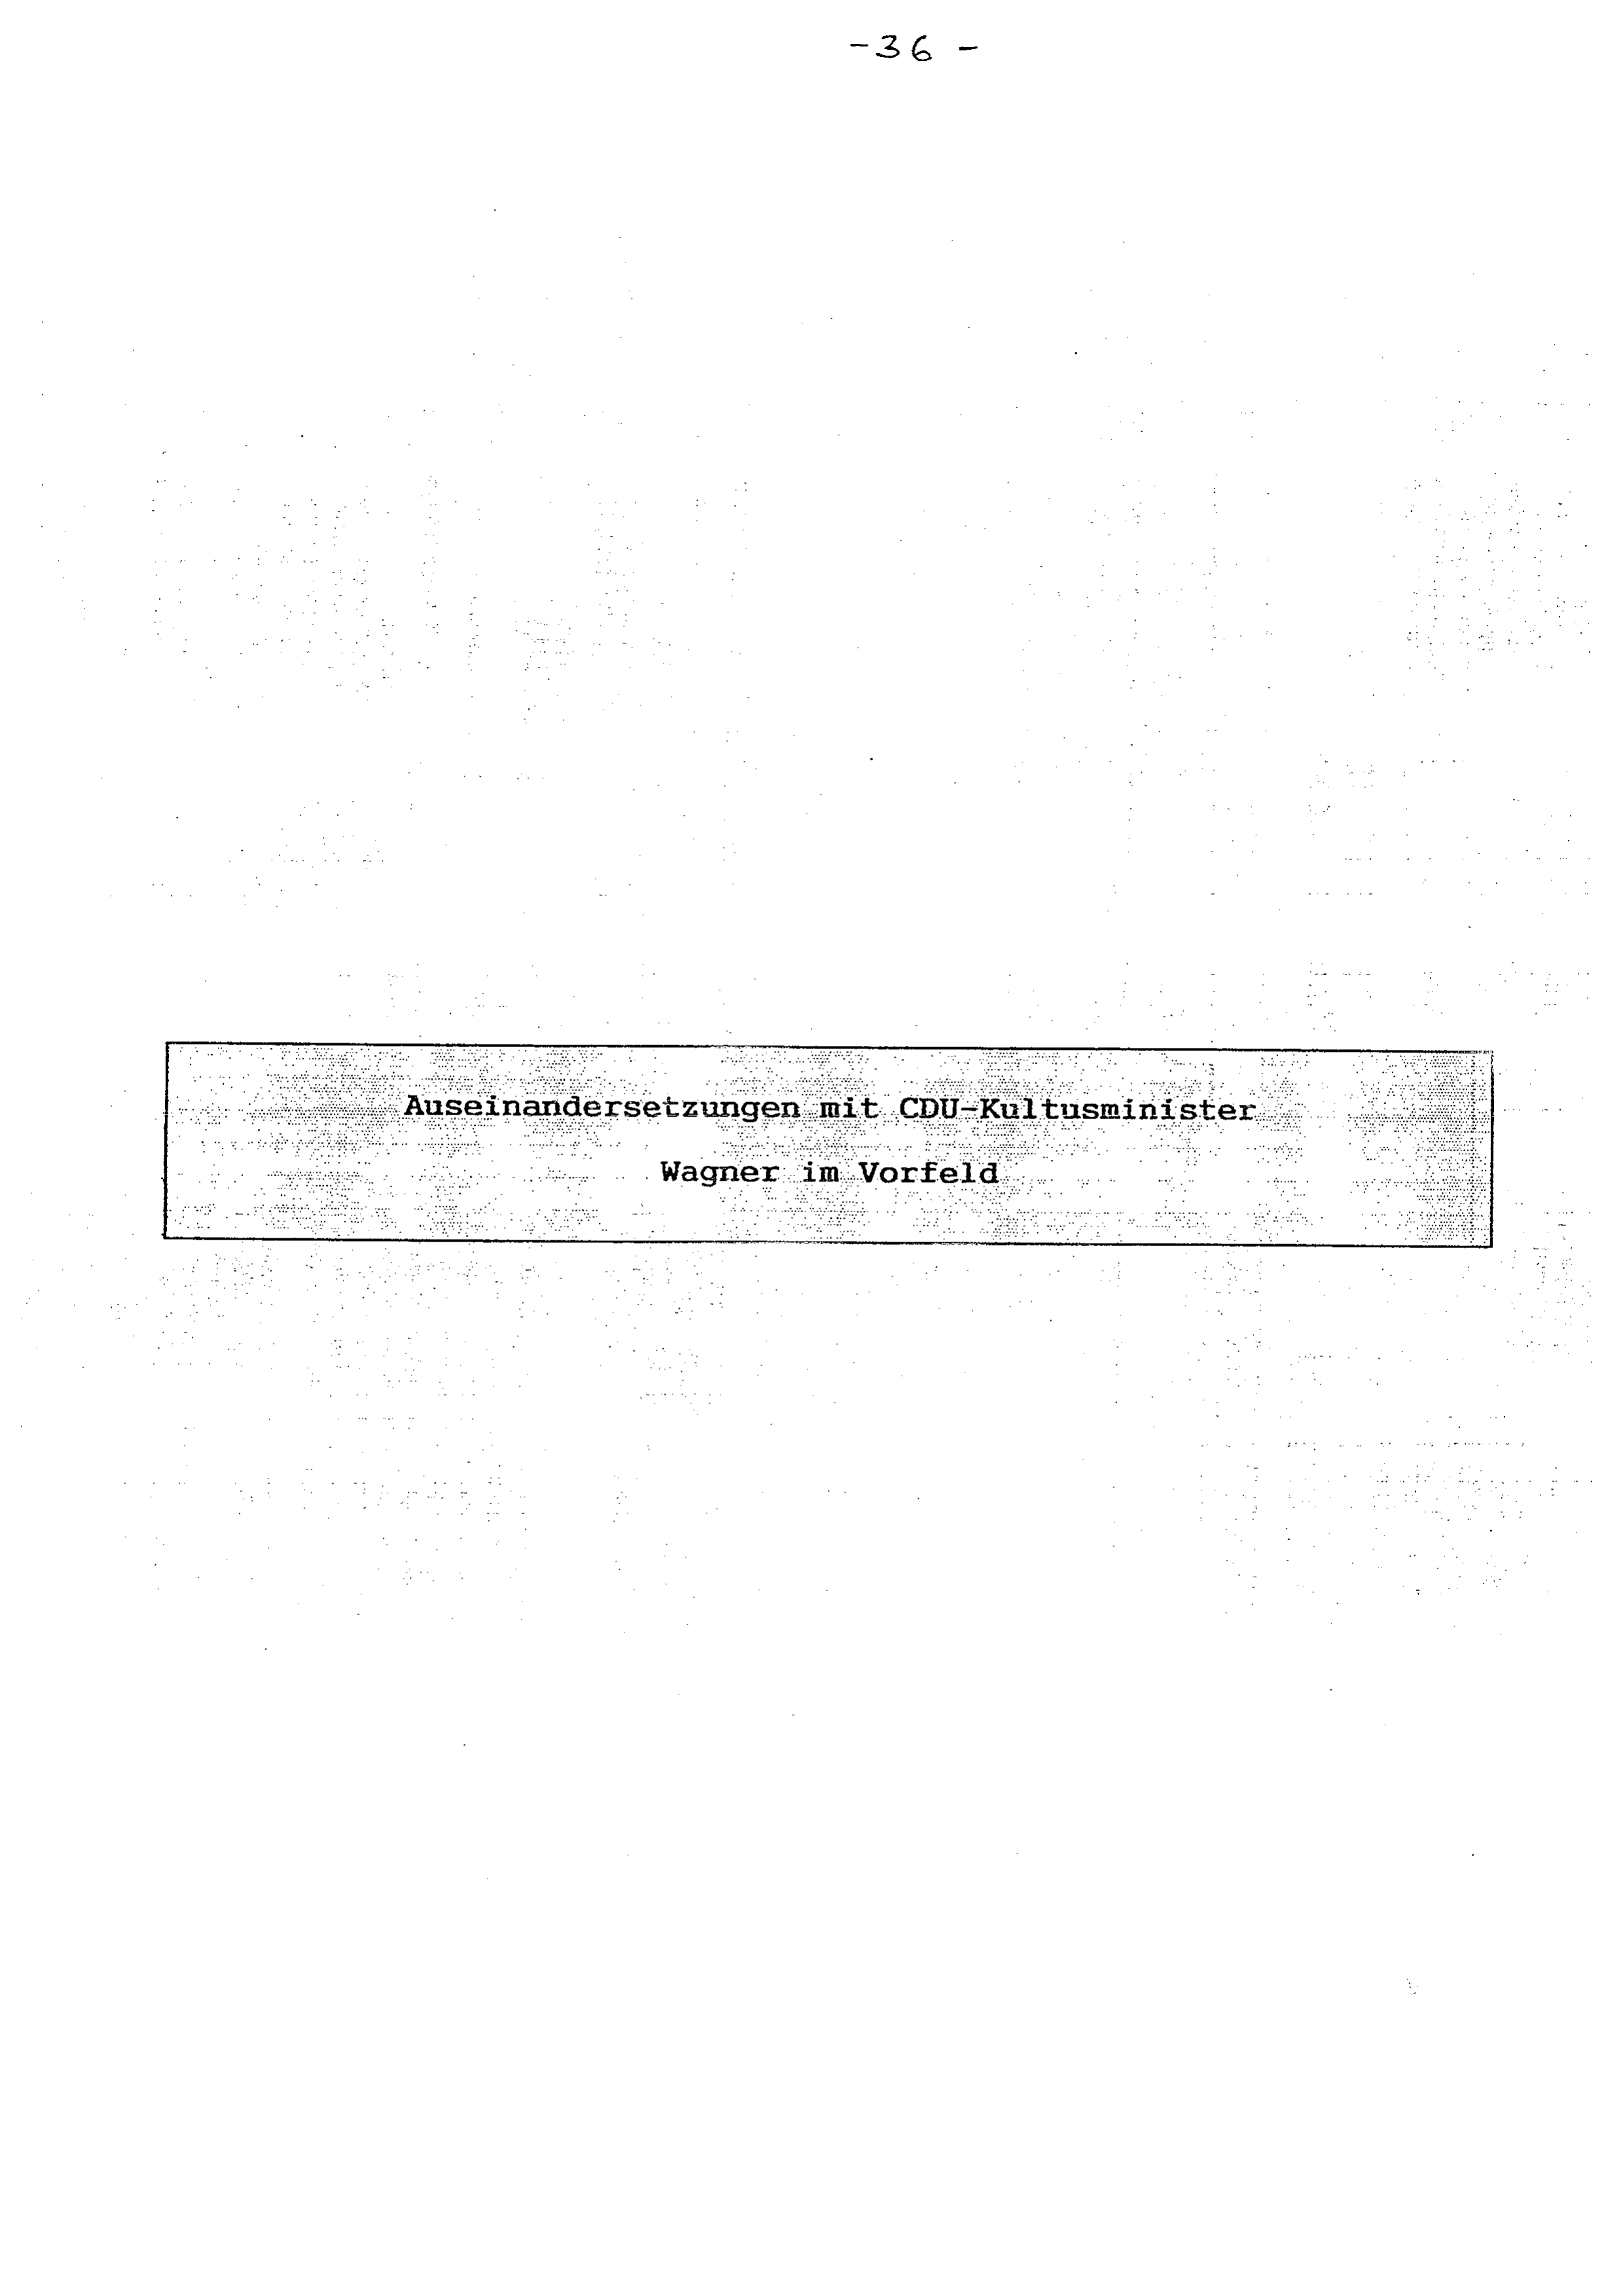 -36 -
Auseinandersetzungen mit CDU-Kultusminister
Wagner im Vorfeld